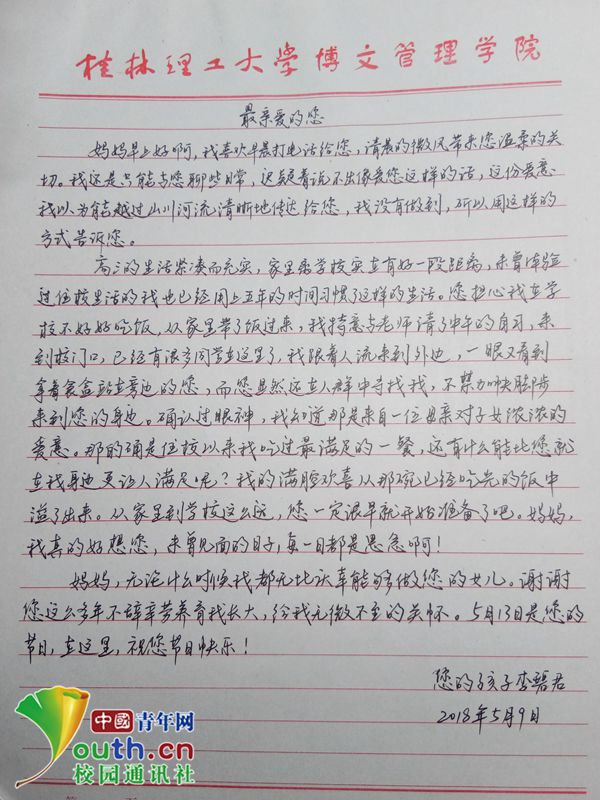 桂林理工大学博文管理学院
最亲爱的您
妈妈早上好啊，我喜欢早晨打电话给您，清晨的微风带来您温柔的关
切。我还是只能与您聊些日常，迟疑着说不出像爱您这样的话，这份爱意
我以为能越过山川河流清晰地传达给您，我没有做到，所以用这样的
方式告诉您。
高三的生活紧凑而充实，家里离学校实在有好一段距离，未曾体验
过住校生活的我也已经用上五年的时间习惯了这样的生活。您担心我在学
校不好好吃饭，从家里带了饭过来，我特意与老师请了中午的自习，来
到校门口，已经有很多同学在这里了，我跟着人流来到外边，一眼又看到
拿着食盒站在旁边的您，而您显然还在人群中寻找我，不禁加快脚步
来到您的身边。确认过眼神，我知道那是来自一位母亲对子女浓浓的
爱意。那的确是住校以来我吃过最满足的一餐，还有什么能比您就
在我身边更让人满足呢？我的满腔欢喜从那碗已经吃光的饭中
溢了出来。从家里到学校这么远，您一定很早就开始准备了吧。妈妈，
我真的好想您，未曾见面的日子，每一日都是思念啊！
妈妈，无论什么时候我都无比庆幸能够做您的女儿。谢谢
您这么多年不辞辛劳养育我长大，给我无微不至的关怀。5月13日是您的
节日，在这里，祝您节日快乐！
您的孩子李碧君
2018年5月9日
中國青年网
Youth.cn
校园通讯社